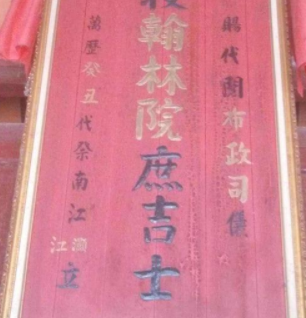 賜代闈布政司儀
授翰林院庶吉士
萬歷癸丑代祭南江
江
立